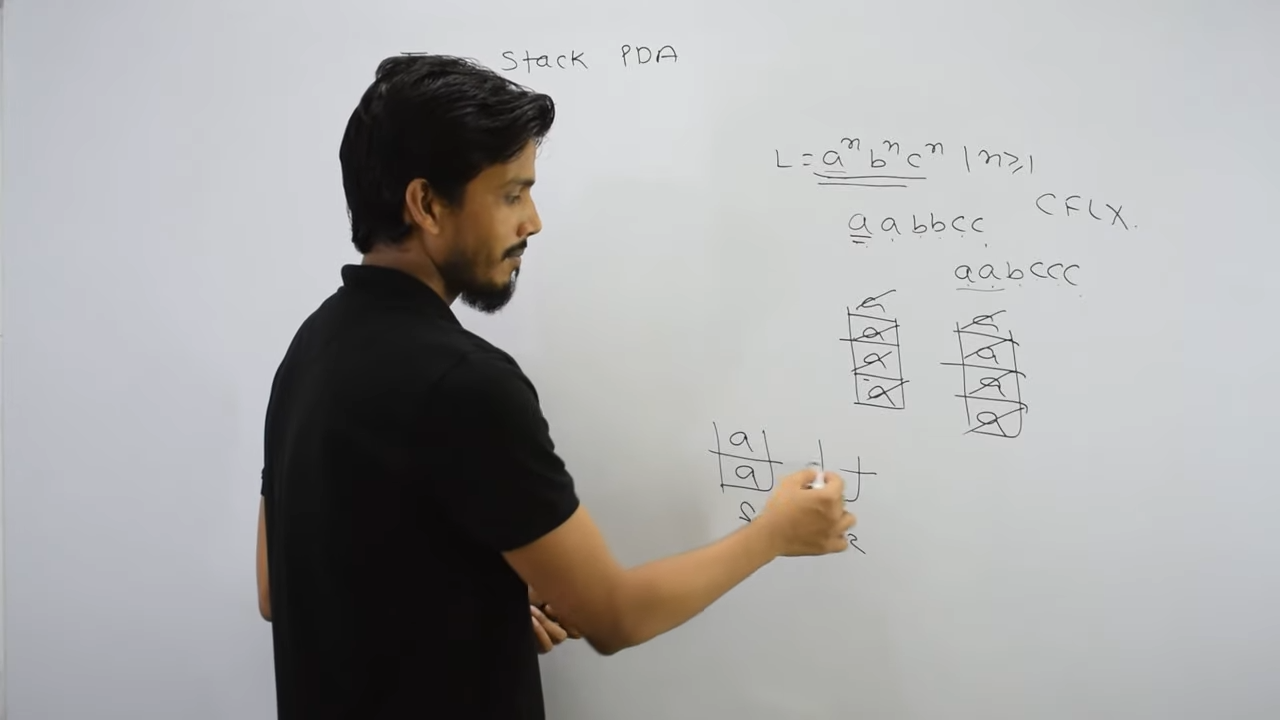 Stack PDA
L = aⁿ bⁿ cⁿ | n ≥ 1
CFL X.
a a b b c c
a a b c c c
a a
a a
a a
a a
a
a